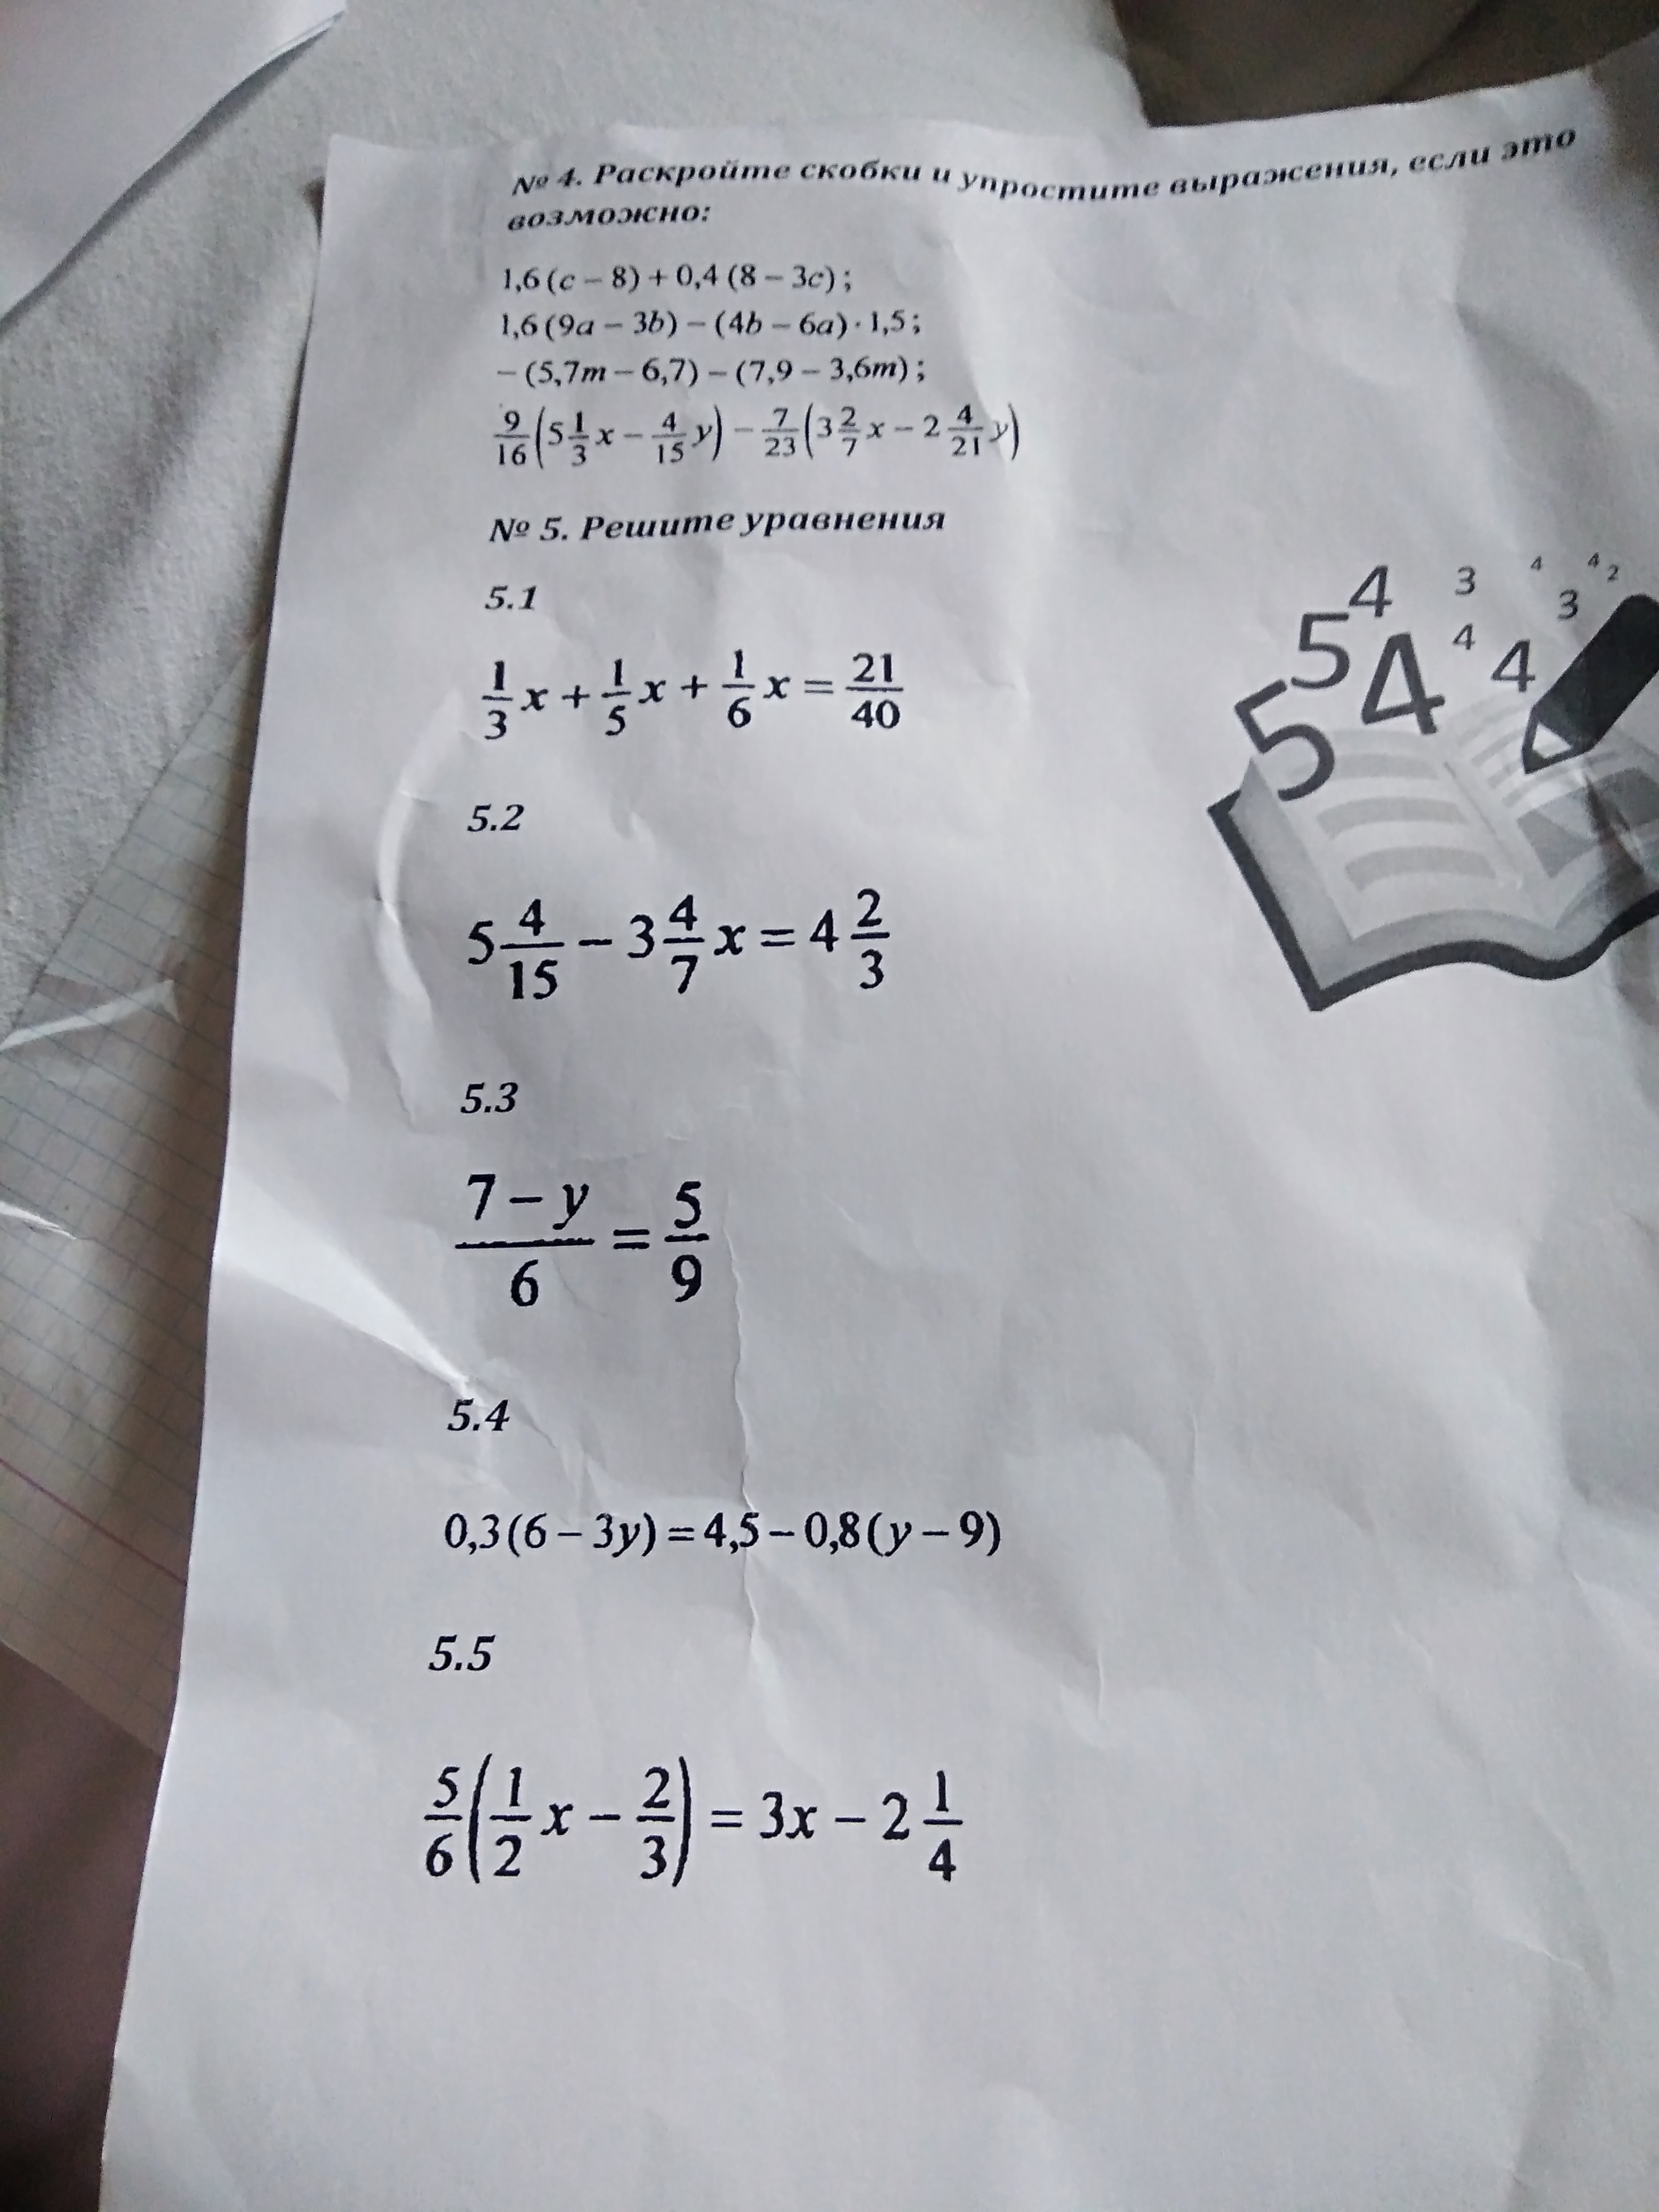 № 4. Раскройте скобки и упростите выражения, если это
возможно:
1,6 (c – 8) + 0,4 (8 – 3c) ;
1,6 (9a – 3b) – (4b – 6a) · 1,5 ;
– (5,7m – 6,7) – (7,9 – 3,6m) ;
9/16 (5 1/3 x – 4/15 y) – 7/23 (3 2/7 x – 2 4/21 y)
№ 5. Решите уравнения
5.1
1/3 x + 1/5 x + 1/6 x = 21/40
5.2
5 4/15 – 3 4/7 x = 4 2/3
5.3
(7 – y)/6 = 5/9
5.4
0,3 (6 – 3y) = 4,5 – 0,8 (y – 9)
5.5
5/6 (1/2 x – 2/3) = 3x – 2 1/4
4 3 4 4 2
5 4 4 4 3
5